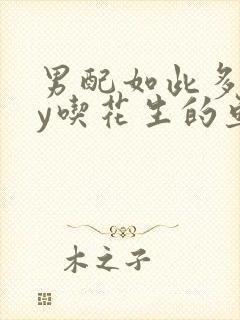 男配如此多
y喫花生的
木之子